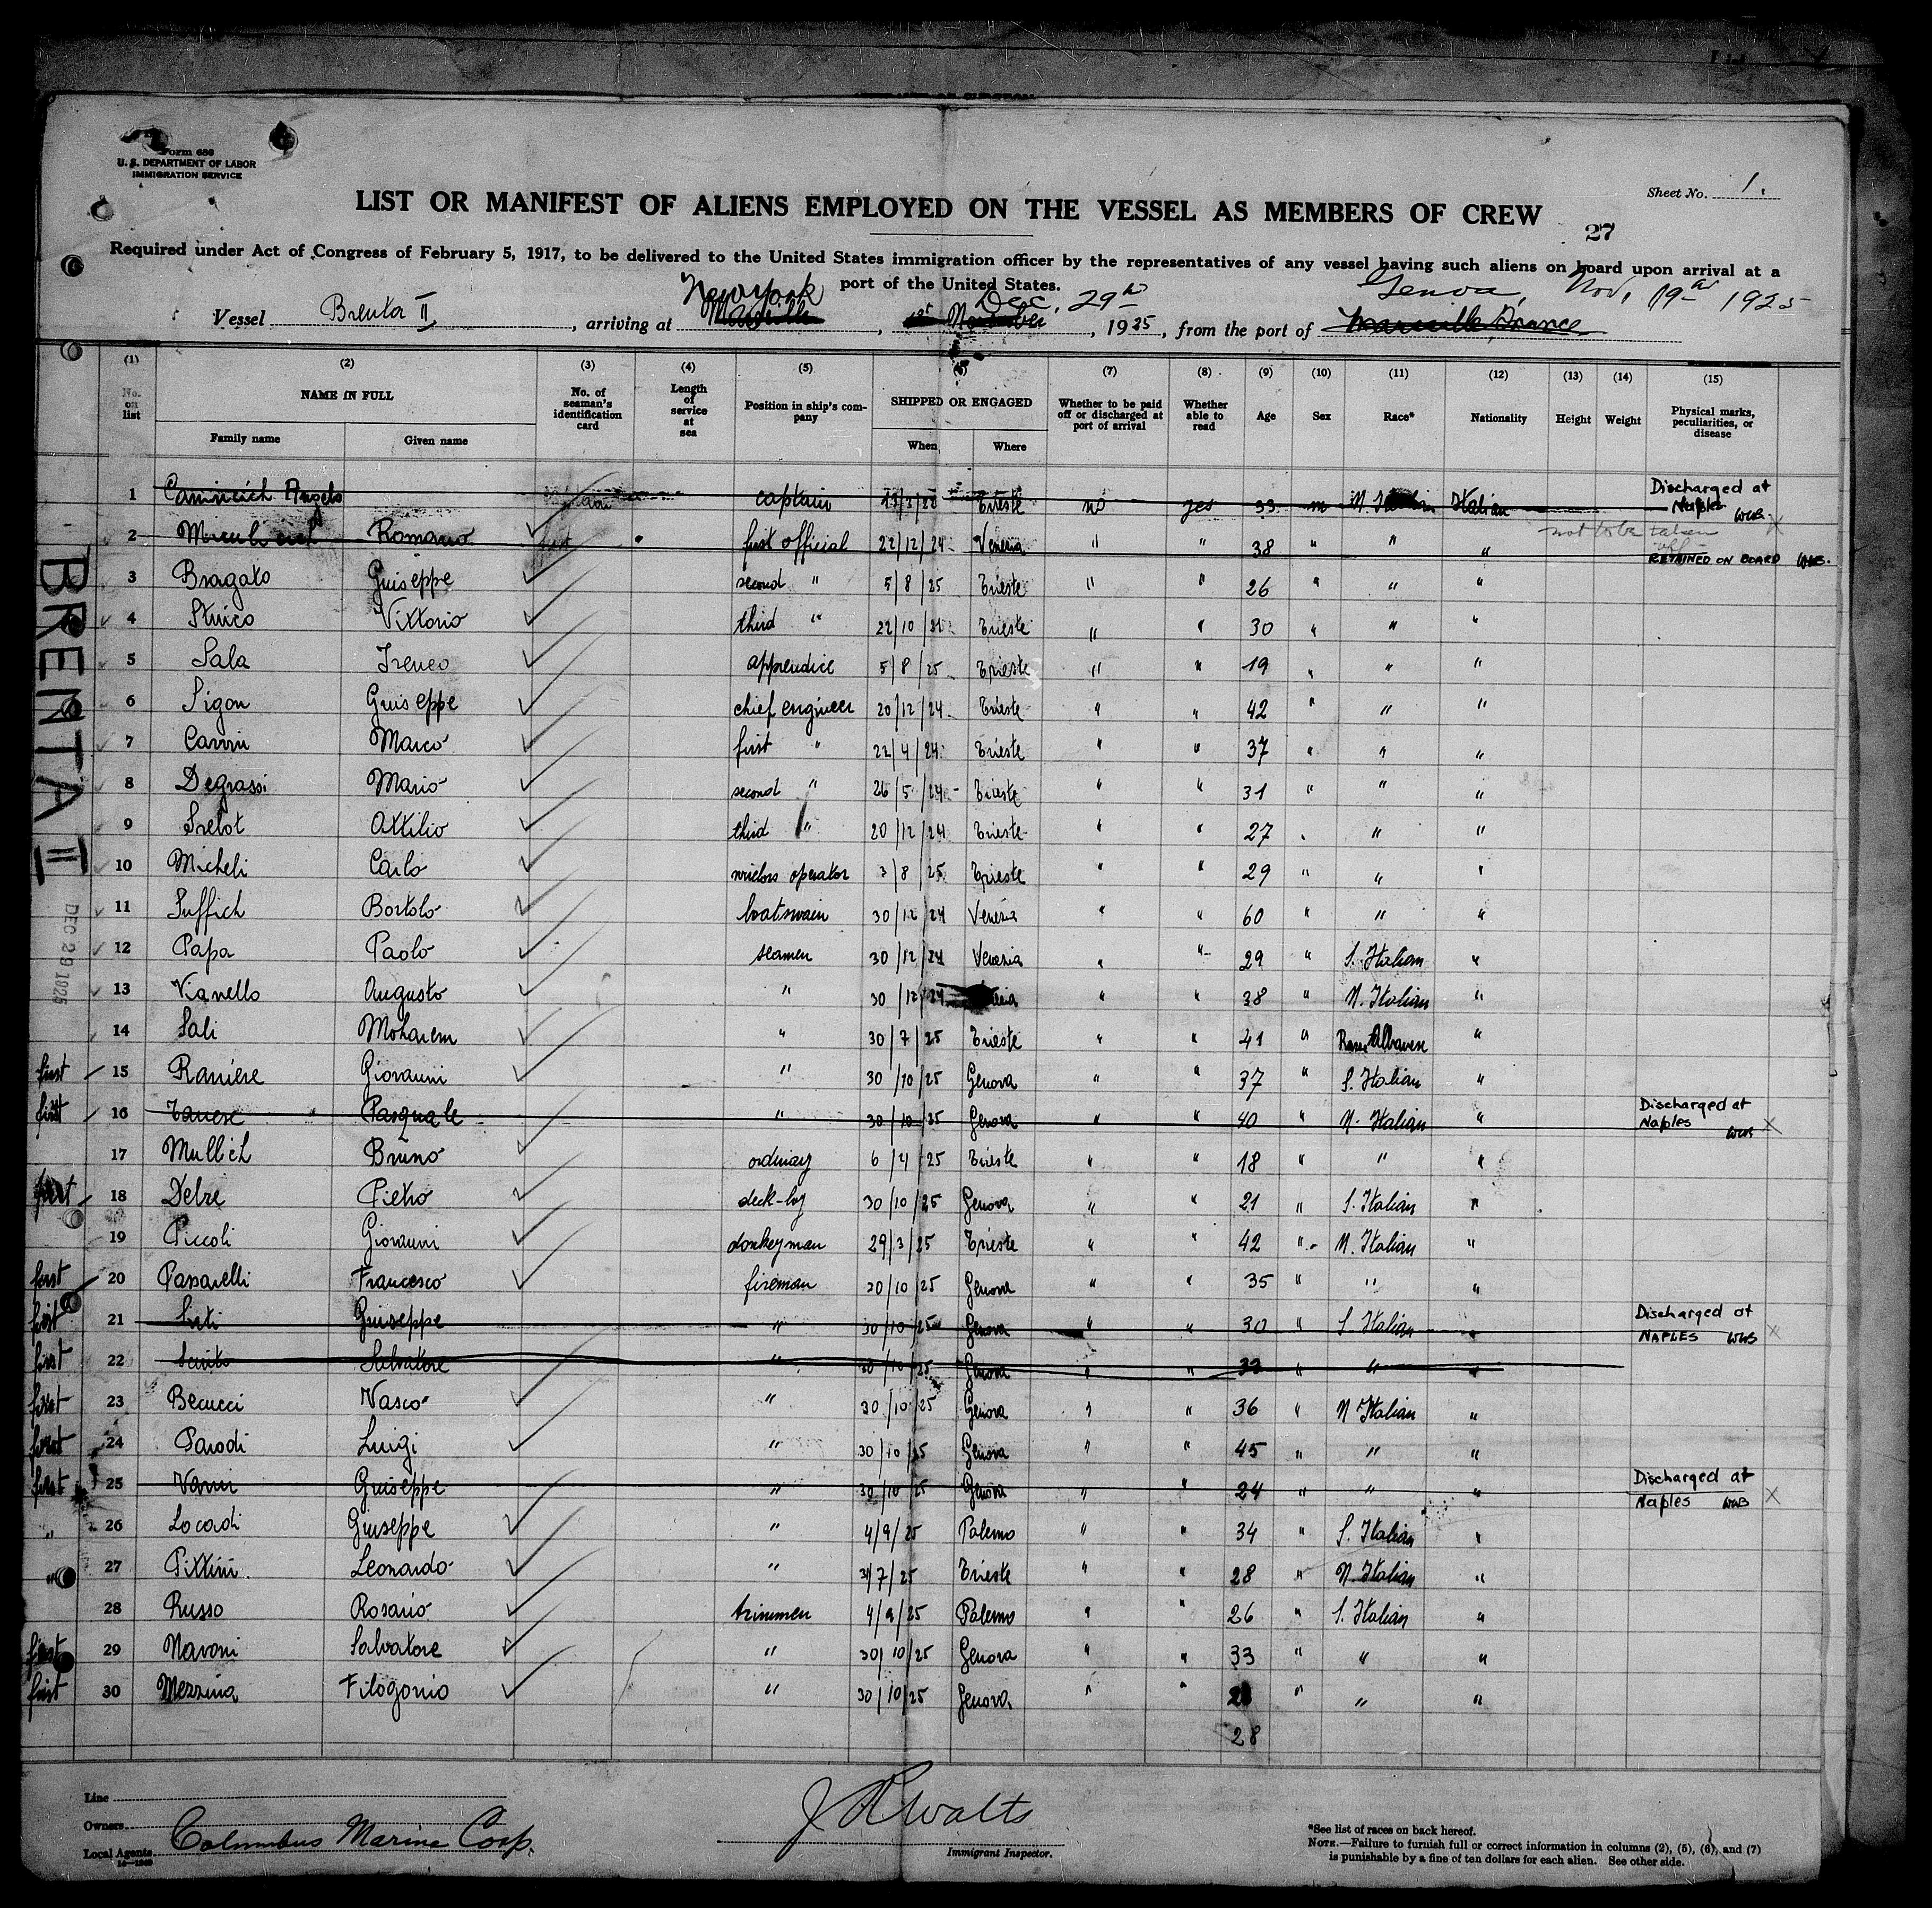 Form 689
U. S. DEPARTMENT OF LABOR
IMMIGRATION SERVICE
Sheet No. 1.
LIST OR MANIFEST OF ALIENS EMPLOYED ON THE VESSEL AS MEMBERS OF CREW
27
Required under Act of Congress of February 5, 1917, to be delivered to the United States immigration officer by the representatives of any vessel having such aliens on board upon arrival at a
port of the United States.
New York Dec. 29th Genova, Nov. 19th 1925
Vessel Brenta II, arriving at Marseille, 1st November, 1925, from the port of Marseille France
(1) (2) (3) (4) (5) (6) (7) (8) (9) (10) (11) (12) (13) (14) (15)
No. on list NAME IN FULL No. of seaman's identification card Length of service at sea Position in ship's company SHIPPED OR ENGAGED Whether to be paid off or discharged at port of arrival Whether able to read Age Sex Race* Nationality Height Weight Physical marks, peculiarities, or disease
Family name Given name When Where
1 Angelo captain Trieste no yes 33 m N. Italian Italian Discharged at Naples WWB
2 Romano first official 22/12/24 Venezia " " 38 " " " not to be taken off RETAINED ON BOARD WWB.
3 Bragato Guiseppe second " 5/8/25 Trieste " " 26 " " "
4 Vittorio third " 22/10 Trieste " " 30 " " "
5 Sala Ireneo apprendice 5/8/25 Trieste " " 19 " " "
6 Sigon Guiseppe chief engineer 20/12/24 Trieste " " 42 " " "
7 Marco first " 22/4/24 Trieste " " 37 " " "
8 Degrassi Mario second " 26/5/24 Trieste " " 31 " " "
9 Attilio third " 20/12/24 Trieste " " 27 " " "
10 Micheli Carlo operator 3/8/25 Trieste " " 29 " " "
11 Suffich Bortolo boatswain 30/12/24 Venezia " " 60 " " "
12 Papa Paolo seamen 30/12/24 Venezia " " 29 " S. Italian "
13 Vianello Augusto " 30/12/24 " " 38 " N. Italian "
14 Sali Moharem " 30/7/25 Trieste " " 41 " Albanese "
first 15 Raniere Giovanni " 30/10/25 Genova " " 37 " S. Italian "
first 16 Pasquale " 30/10/25 Genova " " 40 " N. Italian " Discharged at Naples WWB
17 Mullich Bruno ordinary 6/4/25 Trieste " " 18 " " "
first 18 Delre Pietro deck-boy 30/10/25 Genova " " 21 " S. Italian "
19 Piccoli Giovanni donkeyman 29/3/25 Trieste " " 42 " N. Italian "
first 20 Passarelli Francesco fireman 30/10/25 Genova " " 35 " " "
first 21 Guiseppe " 30/10/25 Genova " " 30 " S Italian " Discharged at NAPLES WWB
first 22 Salvatore " 30/10/25 Genova " " " " "
first 23 Becucci Vasco " 30/10/25 Genova " " 36 " N Italian "
first 24 Parodi Luigi " 30/10/25 Genova " " 45 " " "
first 25 Vanni Guiseppe " 30/10/25 Genova " " 24 " " " Discharged at Naples WWB
" 26 Locadi Giuseppe " 4/9/25 Palermo " " 34 " S. Italian "
" 27 Pittini Leonardo " 7/25 Trieste " " 28 " N. Italian "
28 Russo Rosario trimmer 4/9/25 Palermo " " 26 " S. Italian "
first 29 Navoni Salvatore " 30/10/25 Genova " " 33 " " "
first 30 Mezzina Filogonio " 30/10/25 Genova " " " " "
28
BRENTA II
DEC 29 1925
Line
Owners
Local Agents Columbus Marine Corp.
14—1240
J R Walts
Immigrant Inspector.
*See list of races on back hereof.
NOTE.—Failure to furnish full or correct information in columns (2), (5), (6), and (7)
is punishable by a fine of ten dollars for each alien. See other side.